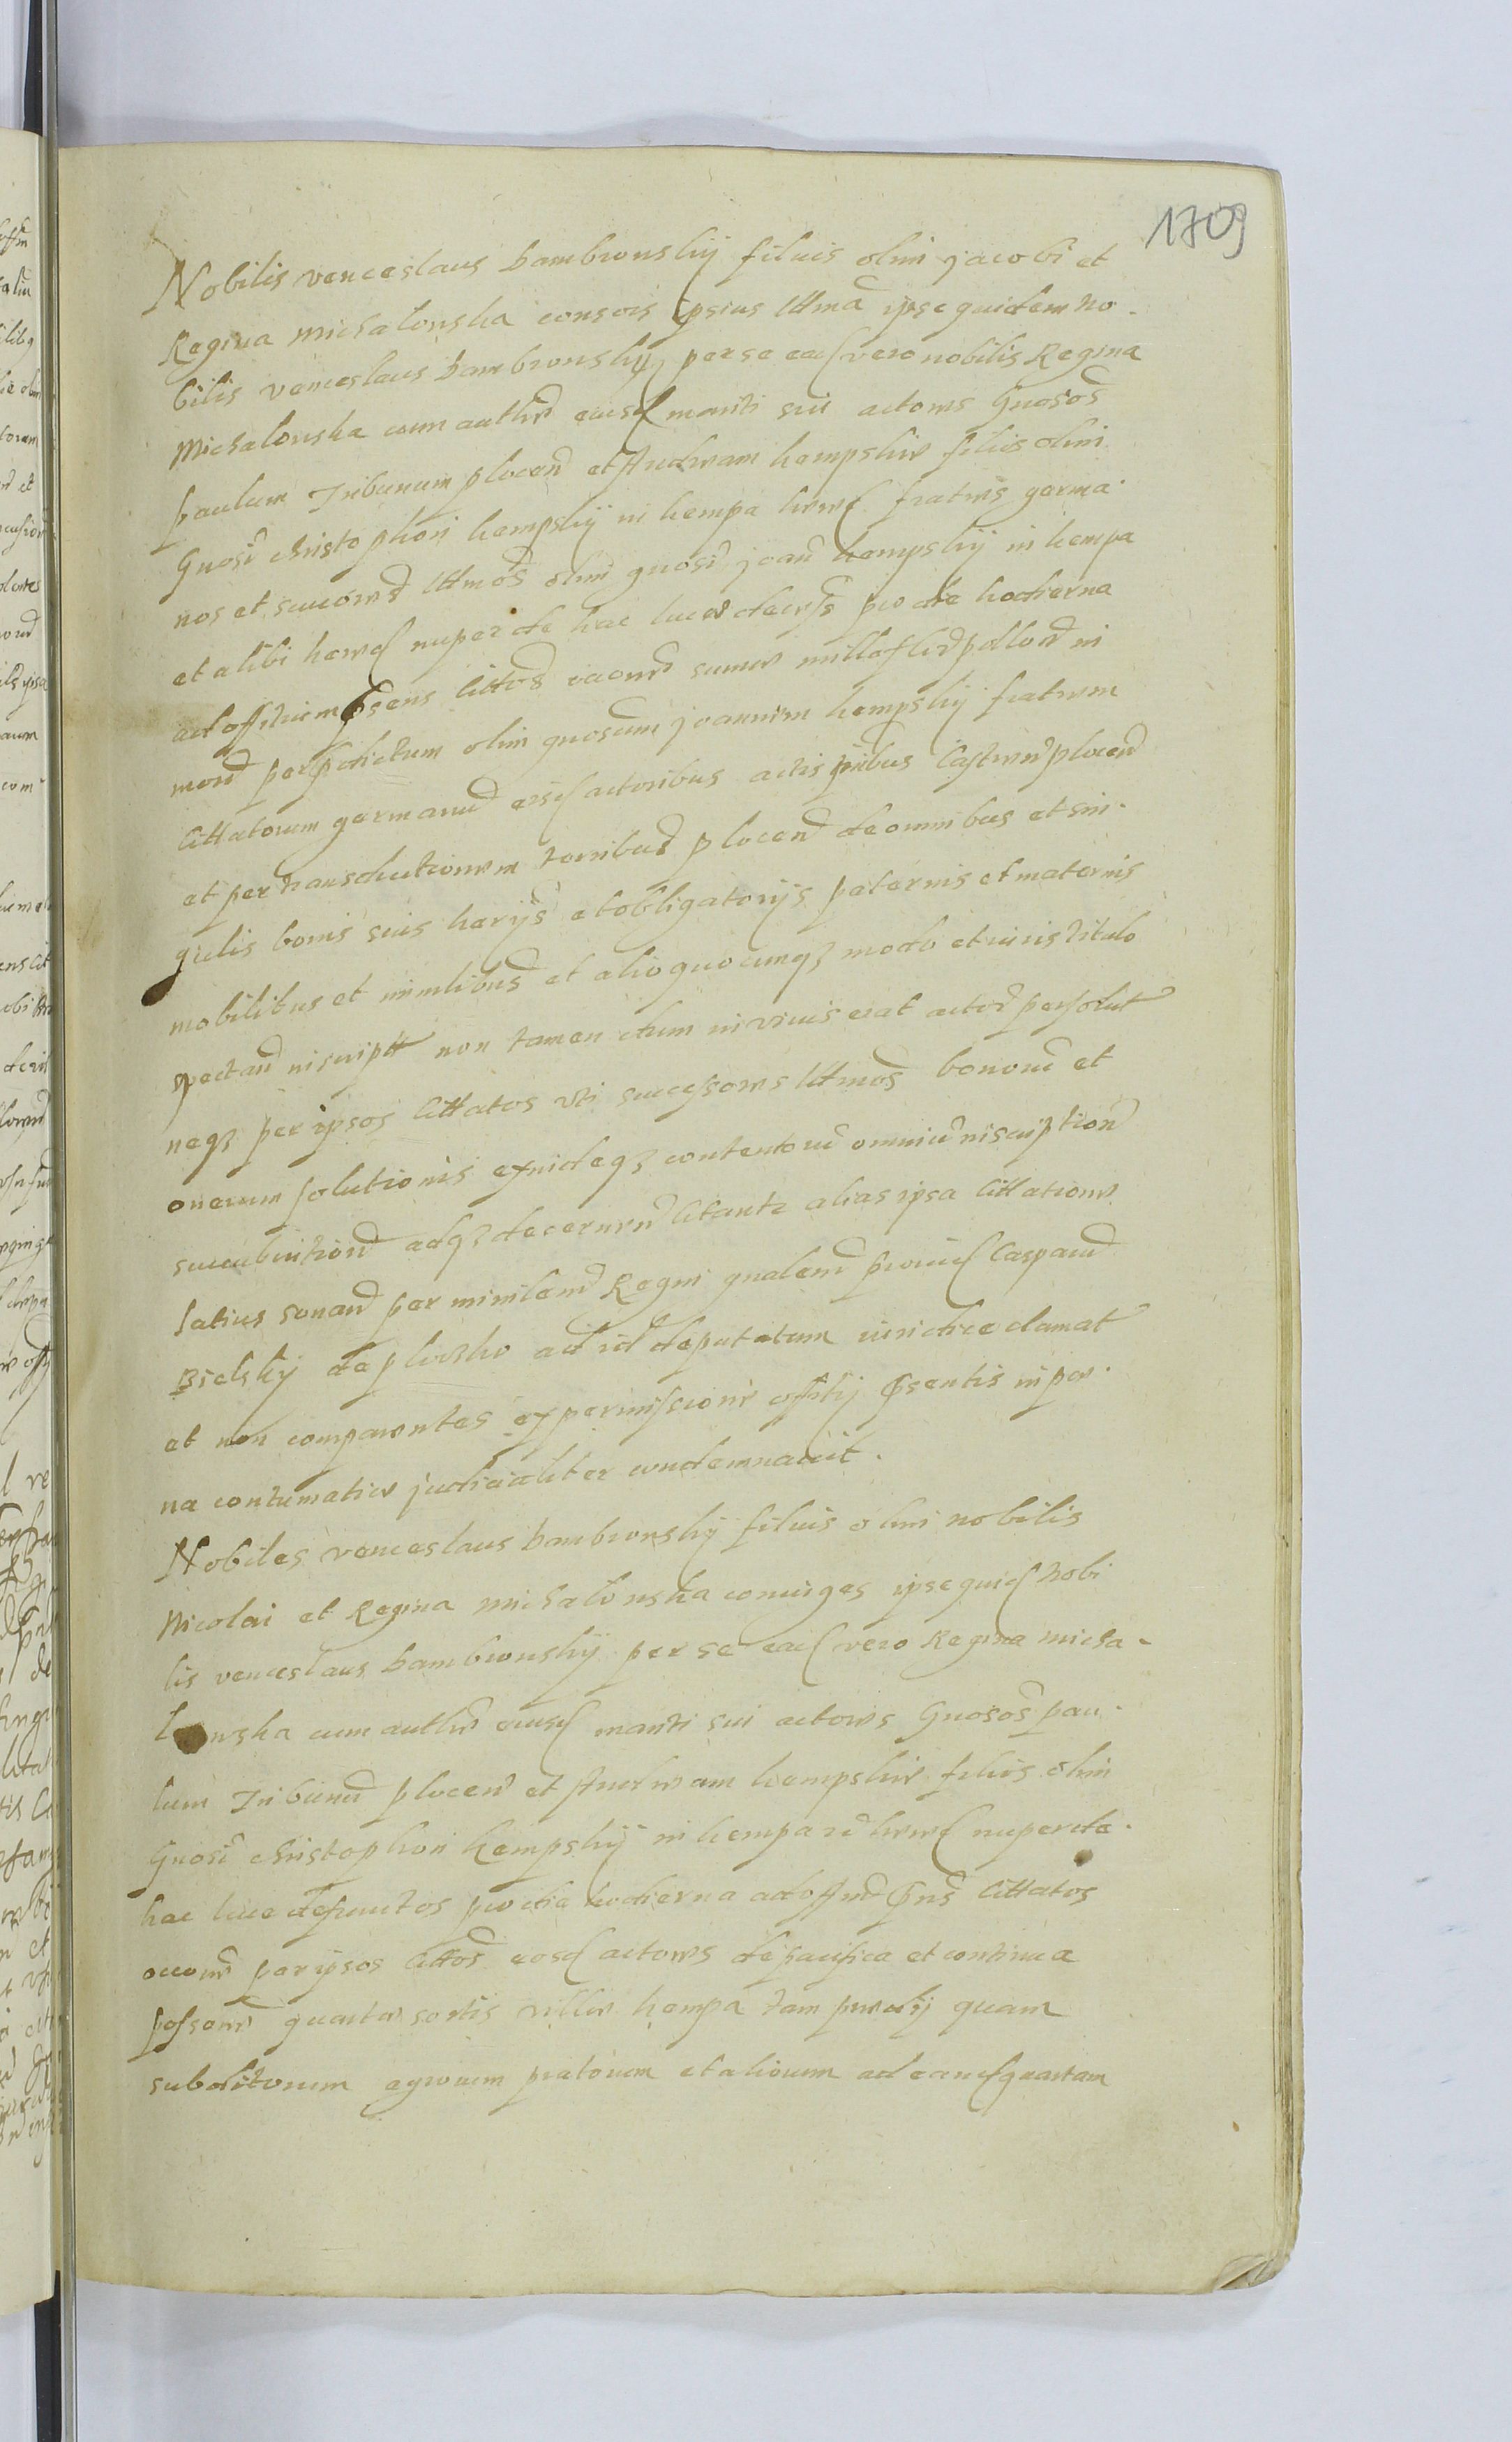 1709
Nobilis venceslaus bambronskÿ filius olim jacobi et
Regina michalonska consors ipsius lttma ipse quidem no-
bilis venceslaus bambronskÿ per se ead vero nobilis Regina
Michalonska cum authte eiusd mariti sui actores Gnosos
paulum Tribunum plocen et Andream kempskie filios olim
Gnosi christophori kempskÿ in kempa hered fratres germa-
nos et succores lttmos olim gnosi joan kempskÿ in kempa
et alibi hered nuper de hac luce decess pro die hodierna
ad offitium psens cittos racone summe mille flor pollon in
mon per pdictum olim gnosum joannem kempskÿ fratrem
cittatorum germanu eisd actoribus actis pntibus Castren plocen
et per transductionem terribus plocen de omnibus et sin-
gulis bonis suis harijs et obligatorijs paternis et maternis
mobilibus et immlibus et alio quocunqz modo et iuris titulo
spectan inscript non tamen dum in vivis erat actor persolut
neqz per ipsos cittatos uti successores lttmos bonoru et
onerum solutionis exindeqz contentoru omniu inscription
succubuition adqz decernen citante alias ipsa cittatione
latius sonan per minilem Regni gnalem provid Casparu
Bielskÿ de plocsko ad id deputatum iuridice clamat
et non comparentes ex permissione offitij psentis in poe-
na contumatie judicialiter condemnavit.
Nobiles venceslaus bambronskÿ filius olim nobilis
Nicolai et Regina michalonska coniuges ipse quid nobi
lis venceslaus bambronskÿ per se ead vero Regina micha-
lonska cum authte eiusd mariti sui actores Gnosos pau-
lum Tribunu plocen et Andream kempskie filios olim
Gnosi christophori kempskÿ in kempa hered nuper de
hac luce defunctos pro die hodierna ad offim pns cittatos
occone per ipsos cittos eosd actores de pacifica et continua
possone quarte sortis ville kempa tam predij quam
subditorum agrorum pratorum et aliorum ad eand quartam